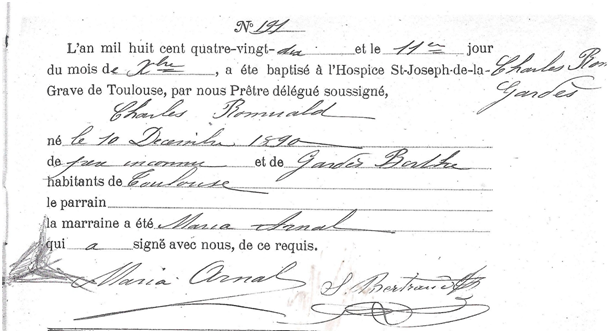 N° 191
L'an mil huit cent quatre-vingt-dix et le 11em jour
du mois de Xbre, a éte baptisé à l'Hospice St-Joseph-de-la-
Grave de Toulouse, par nous Prêtre délégué soussigné,
Charles Rom
Gardès
Charles Romuald
né le 10 Decembre 1890
de père inconnu et de Gardès Berthe
habitants de Toulouse
le parrain
la marraine a été Maria Arnal
qui a signé avec nous, de ce requis.
Maria Arnal
S. Bertrand